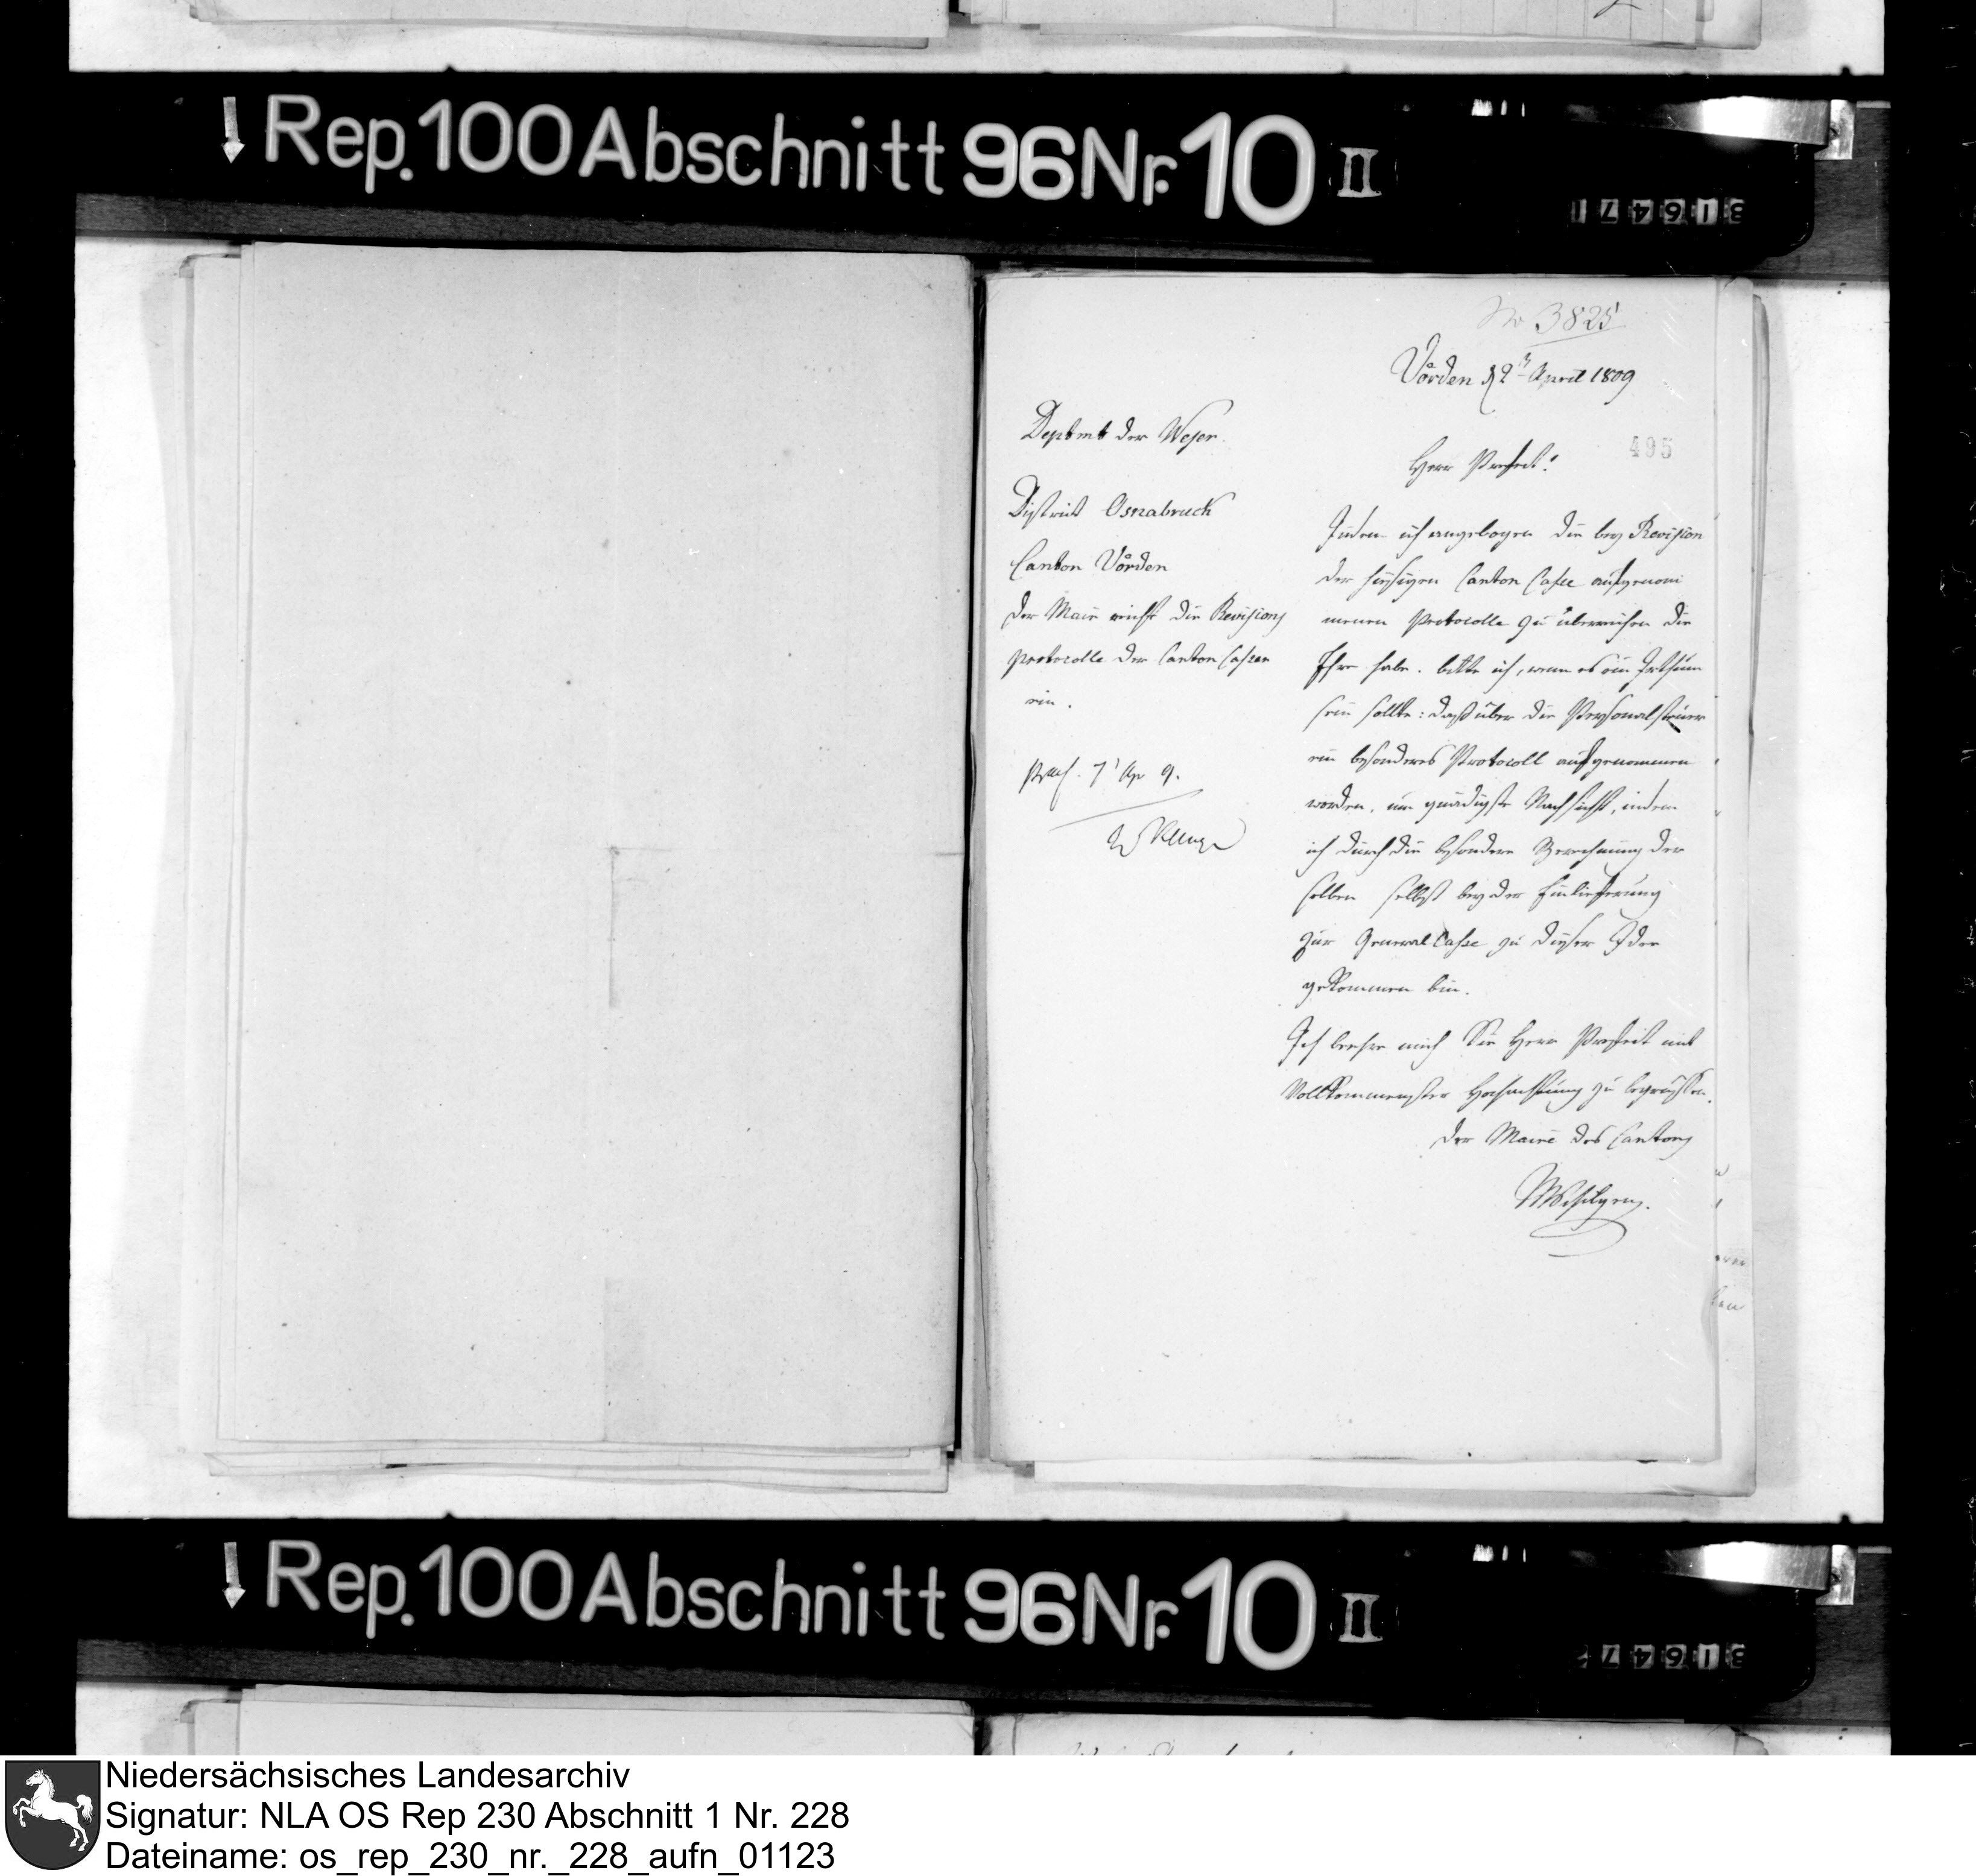 Rep. 100 Abschnitt 96 Nr. 10 II
316471
No 3825
Vörden d 2t April 1809
495
Deptmt der Weser.
District Osnabruck
Canton Vörden
Der Maire reicht die Revisions
protocolle der Canton Cassen
ein.
praes. 7' Apr 9.
Herr Praefect!
Indem ich angebogen die bey Revision
der hiesigen Canton Casse aufgenom
menen Protocolle zu überreichen die
Ehre habe. bitte ich, wenn es ein Irthum
sein sollte: daß über die Personalsteuer
ein besonderes Protocoll aufgenommen
worden, um gnädigste Nachsicht, indem
ich durch die besondere Berechnung der
selben selbst bey der Einlieferung
zur General Casse zu dieser Idee
gekommen bin.
Ich beehre mich Sie Herr Praefect mit
Vollkommenster Hochachtung zu begrüßen.
Der Maire des Cantons
Rep. 100 Abschnitt 96 Nr. 10 II
31647
Niedersächsisches Landesarchiv
Signatur: NLA OS Rep 230 Abschnitt 1 Nr. 228
Dateiname: os_rep_230_nr._228_aufn_01123